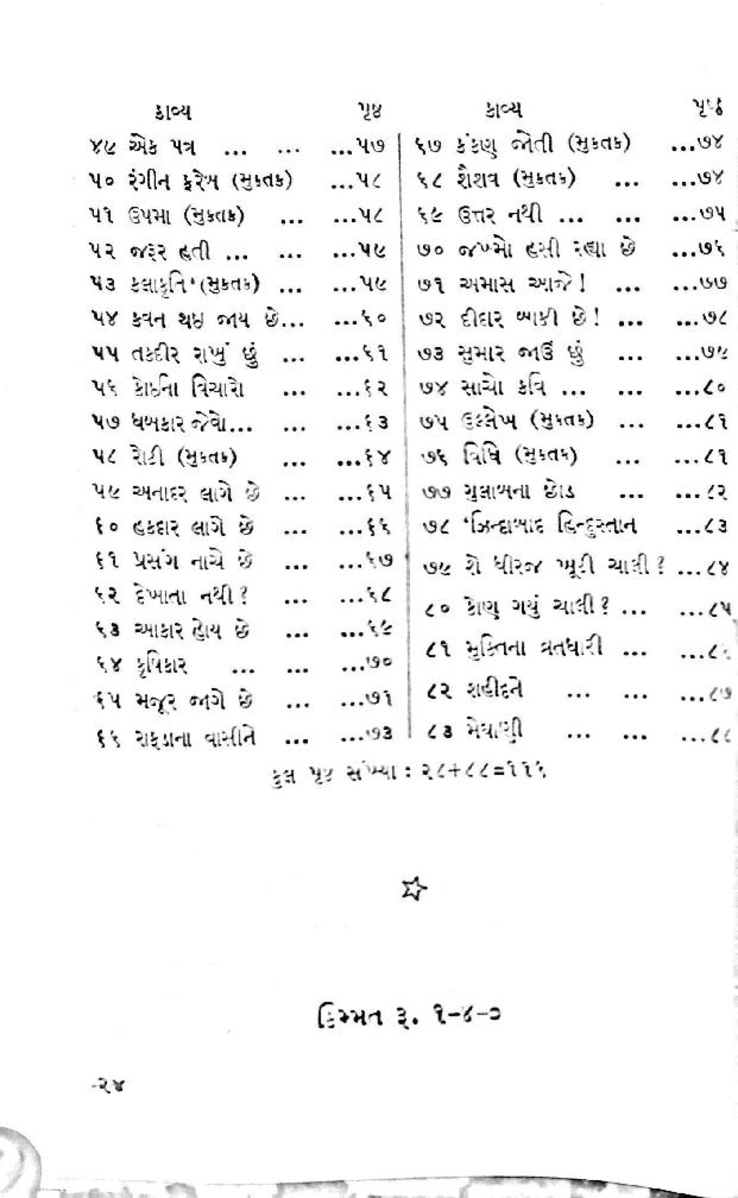 કાવ્ય પૃષ્ઠ
૪૯ એક પત્ર ... ... ...૫૭
૫૦ રંગીન ફરેબ (મુક્તક) ...૫૮
૫૧ ઉપમા (મુક્તક) ... ...૫૮
૫૨ જરૂર હતી ... ... ...૫૯
૫૩ કલાકૃતિ (મુક્તક) ... ...૫૯
૫૪ કવન થઇ જાય છે... ...૬૦
૫૫ તકદીર રાખું છું ... ...૬૧
૫૬ કોઇના વિચારો ... ...૬૨
૫૭ ધબકાર જેવો... ... ...૬૩
૫૮ રોટી (મુક્તક) ... ...૬૪
૫૯ અનાદર લાગે છે ... ...૬૫
૬૦ હકદાર લાગે છે ... ...૬૬
૬૧ પ્રસંગ નાચે છે ... ...૬૭
૬૨ દેખાતા નથી? ... ...૬૮
૬૩ આકાર હોય છે ... ...૬૯
૬૪ કૃષિકાર ... ... ...૭૦
૬૫ મજૂર જાગે છે ... ...૭૧
૬૬ રાફડાના વાસીને ... ...૭૩
કાવ્ય પૃષ્ઠ
૬૭ કંકણ જોતી (મુક્તક) ...૭૪
૬૮ શૈશવ (મુક્તક) ... ...૭૪
૬૯ ઉત્તર નથી ... ... ...૭૫
૭૦ જખ્મો હસી રહ્યા છે ...૭૬
૭૧ અમાસ આજે! ... ...૭૭
૭૨ દીદાર બાકી છે! ... ...૭૮
૭૩ સુમાર જાઉં છું ... ...૭૯
૭૪ સાચો કવિ ... ... ...૮૦
૭૫ ઉલ્લેખ (મુક્તક) ... ...૮૧
૭૬ વિધિ (મુક્તક) ... ...૮૧
૭૭ ગુલાબના છોડ ... ...૮૨
૭૮ 'ઝિન્દાબાદ હિન્દુસ્તાન ...૮૩
૭૯ શે ધીરજ ખૂટી ચાલી? ...૮૪
૮૦ કોણ ગયું ચાલી? ... ...૮૫
૮૧ મુક્તિના વ્રતધારી ... ...૮૬
૮૨ શહીદને ... ... ...૮૭
૮૩ મેઘાણી ... ... ...૮૮
કુલ પૃષ્ઠ સંખ્યા : ૨૮+૮૮=૧૧૬
કિમ્મત રૂ. ૧-૪-૦
-૨૪